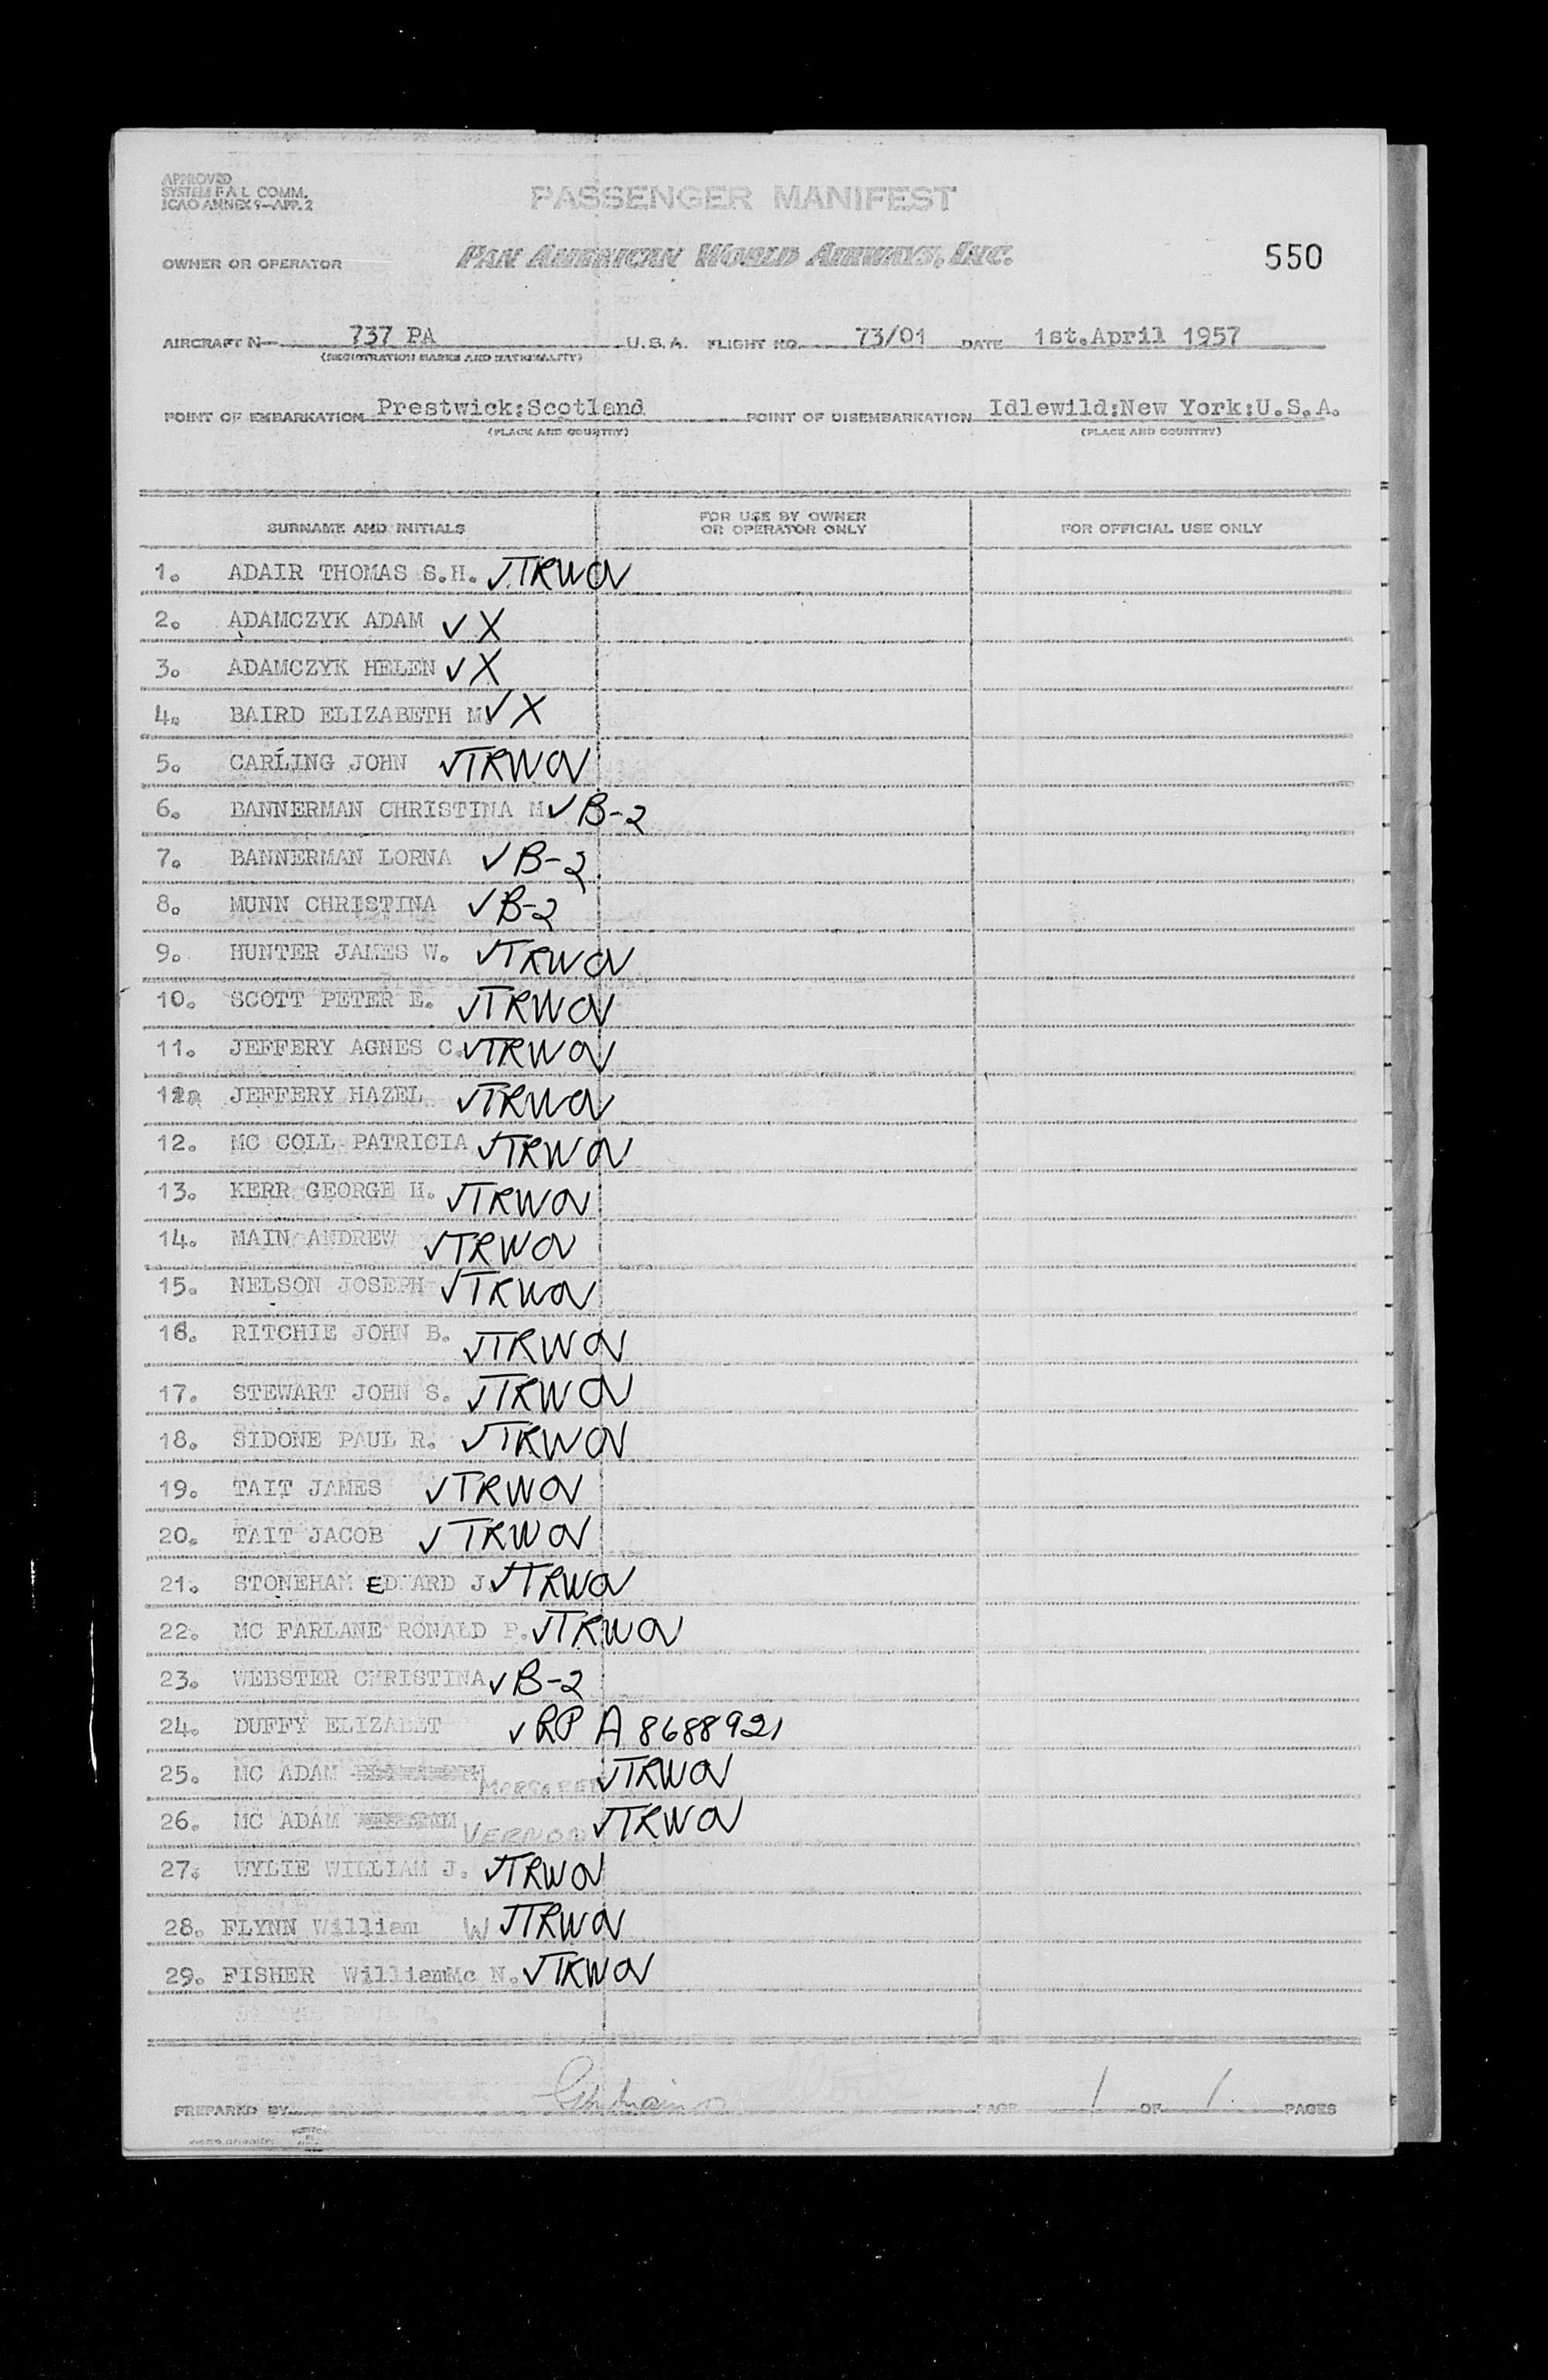 APPROVED
SYSTEM F.A.L. COMM.
ICAO ANNEX 9—APP. 2
PASSENGER MANIFEST
OWNER OR OPERATOR PAN AMERICAN WORLD AIRWAYS, INC. 550
AIRCRAFT N— 737 PA U.S.A. FLIGHT NO. 73/01 DATE 1st.April 1957
(REGISTRATION MARKS AND NATIONALITY)
POINT OF EMBARKATION Prestwick:Scotland POINT OF DISEMBARKATION Idlewild:New York:U.S.A.
(PLACE AND COUNTRY) (PLACE AND COUNTRY)
SURNAME AND INITIALS FOR USE BY OWNER OR OPERATOR ONLY FOR OFFICIAL USE ONLY
1. ADAIR THOMAS S.H. ✓TRWOV
2. ADAMCZYK ADAM ✓ X
3. ADAMCZYK HELEN ✓ X
4. BAIRD ELIZABETH M ✓ X
5. CARLING JOHN ✓TRWOV
6. BANNERMAN CHRISTINA M ✓ B-2
7. BANNERMAN LORNA ✓ B-2
8. MUNN CHRISTINA ✓ B-2
9. HUNTER JAMES W. ✓TRWOV
10. SCOTT PETER E. ✓TRWOV
11. JEFFERY AGNES C. ✓TRWOV
11a JEFFERY HAZEL ✓TRWOV
12. MC COLL PATRICIA ✓TRWOV
13. KERR GEORGE H. ✓TRWOV
14. MAIN ANDREW ✓TRWOV
15. NELSON JOSEPH ✓TRWOV
16. RITCHIE JOHN B. ✓TRWOV
17. STEWART JOHN S. ✓TRWOV
18. SIDONE PAUL R. ✓TRWOV
19. TAIT JAMES ✓TRWOV
20. TAIT JACOB ✓TRWOV
21. STONEHAM EDWARD J. ✓TRWOV
22. MC FARLANE RONALD P. ✓TRWOV
23. WEBSTER CHRISTINA ✓ B-2
24. DUFFY ELIZABET ✓ RP A 8688921
25. MC ADAM MARGARET ✓TRWOV
26. MC ADAM VERNON ✓TRWOV
27. WYLIE WILLIAM J. ✓TRWOV
28. FLYNN William W ✓TRWOV
29. FISHER WilliamMc N. ✓TRWOV
PREPARED BY PAGE 1 OF 1. PAGES